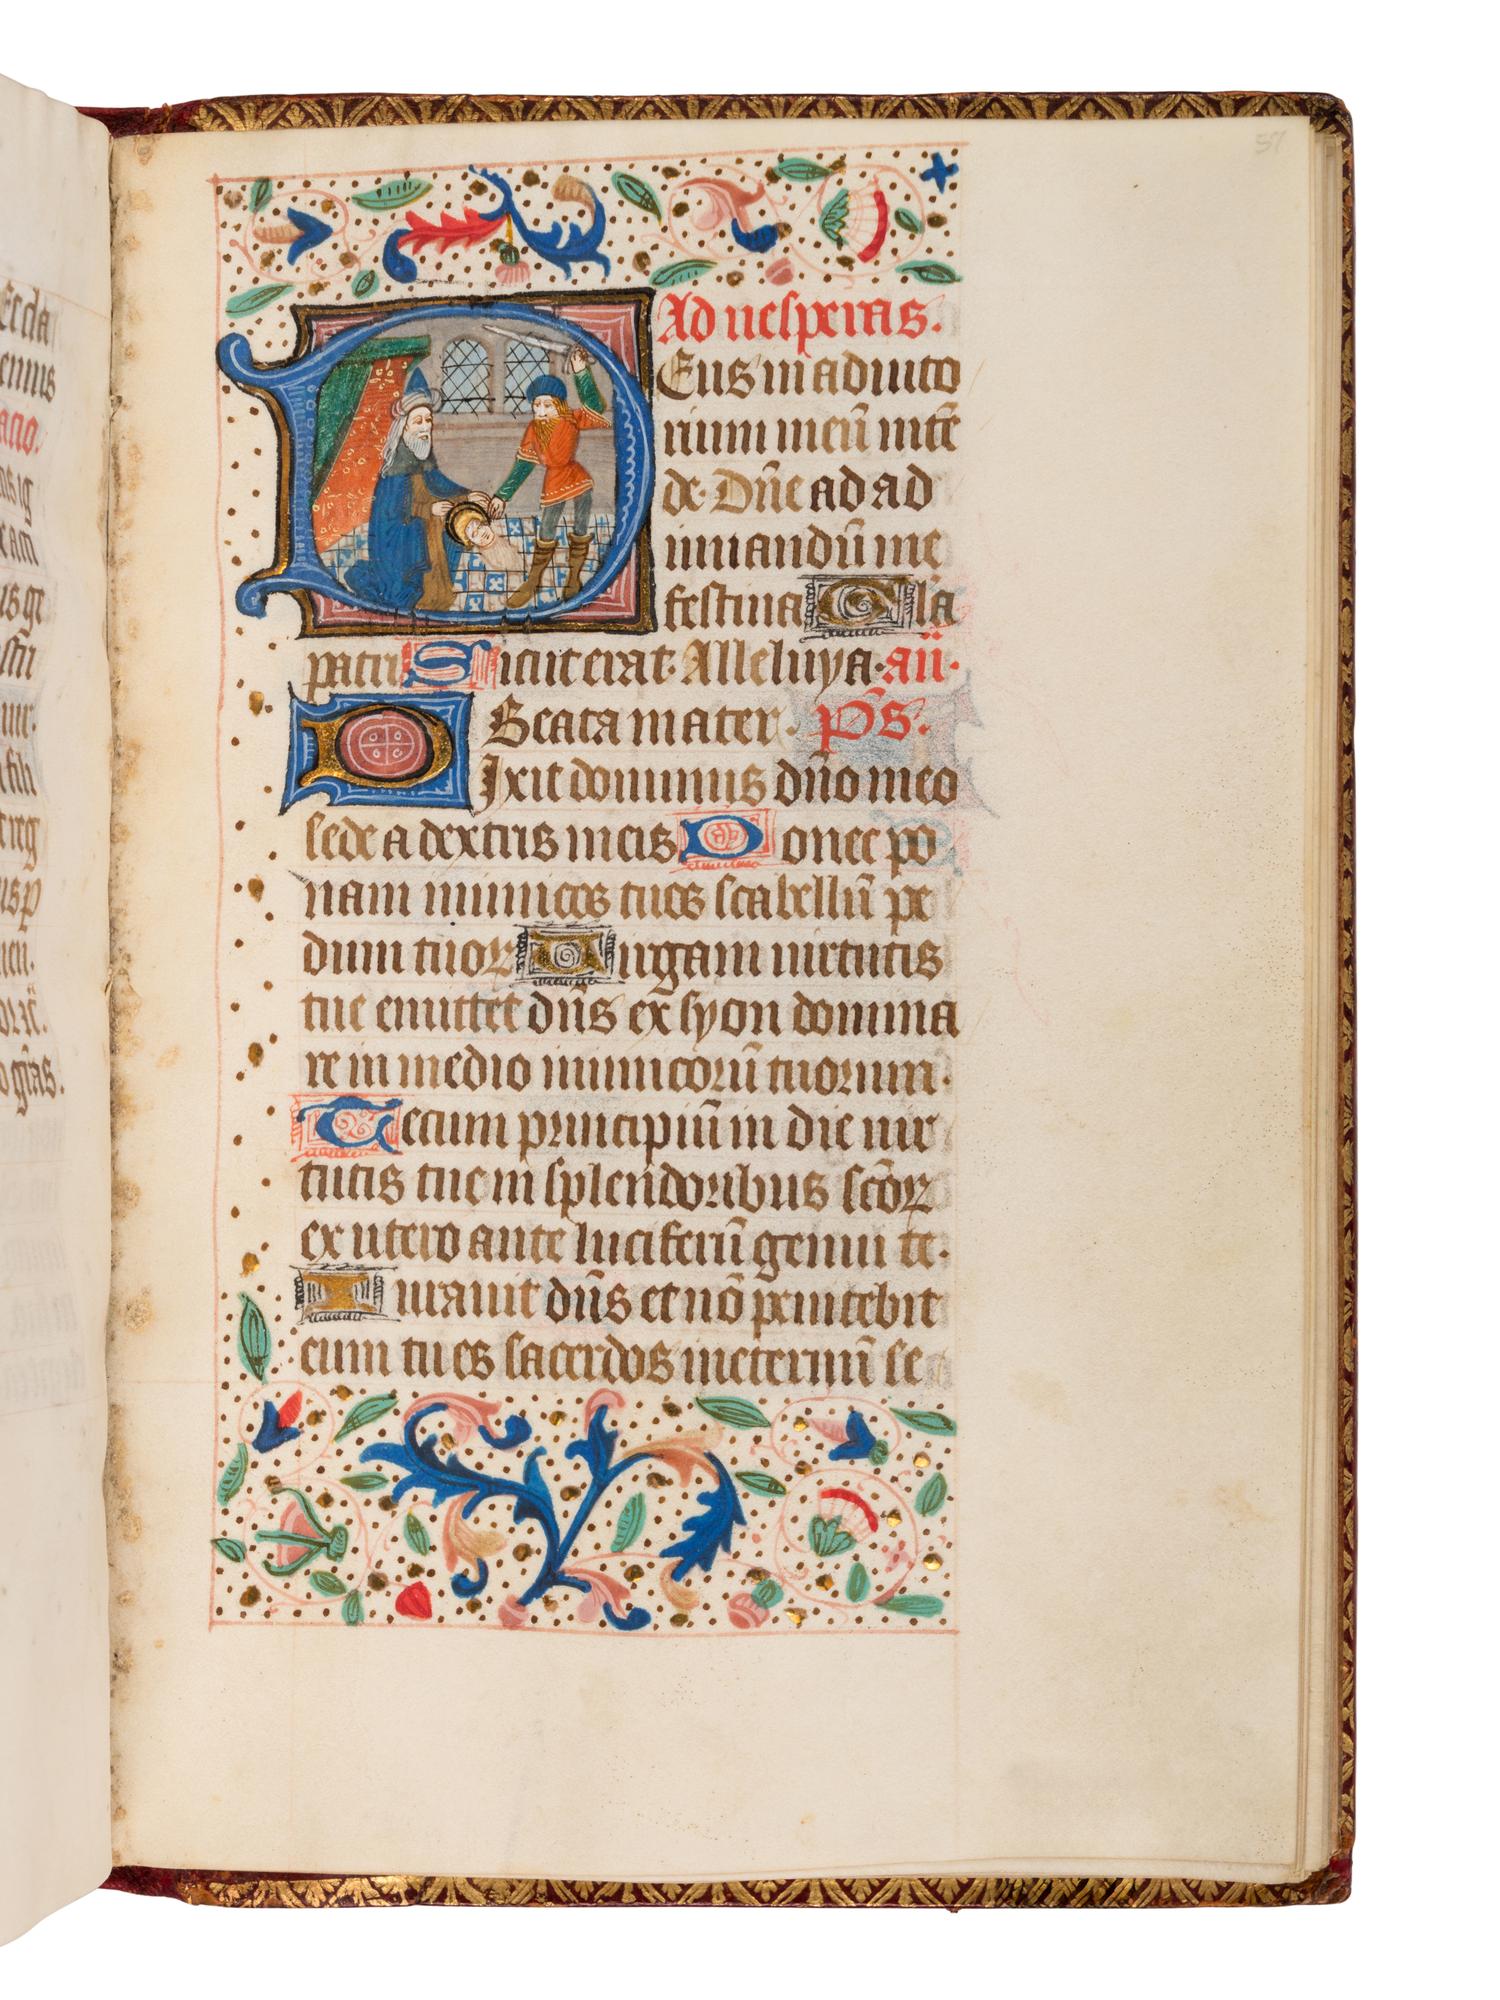 Ad uesperas.
Deus in adiuto
rium meū intē
de. Dn̄e ad ad
iuuandū me
festina Gl̄a
patri Sicut erat. Alleluya. an̄.
Beata mater. Ps̄.
Dixit dominus dn̄o meo
sede a dextris meis Donec po
nam inimicos tuos scabellū pe
dum tuoꝝ Uirgam uirtutis
tue emittet dn̄s ex syon domina
re in medio inimicorū tuorum.
Tecum principiū in die uir
tutis tue in splendoribus sc̄oꝝ
ex utero ante luciferū genui te.
Iurauit dn̄s et nō penitebit
eum tu es sacerdos in eternū se